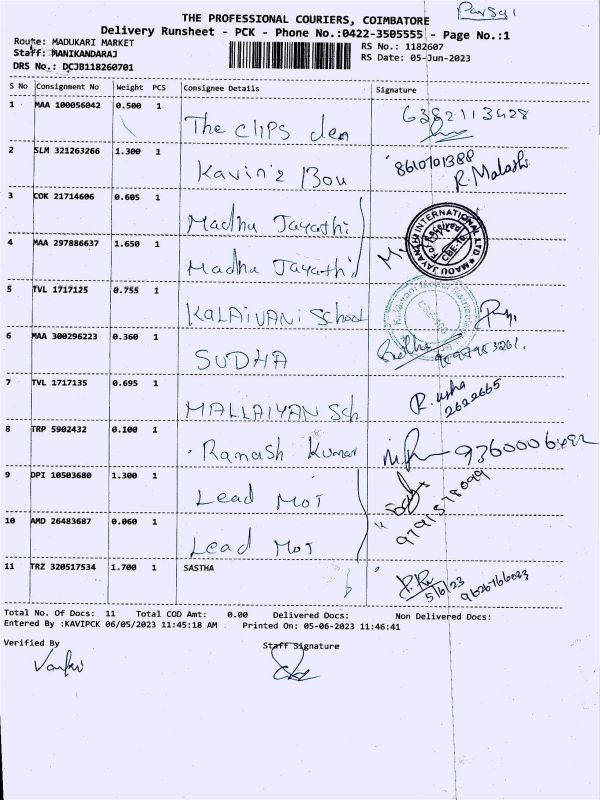 THE PROFESSIONAL COURIERS, COIMBATORE
Delivery Runsheet - PCK - Phone No.:0422-3505555 - Page No.:1
Route: MADUKARI MARKET
RS No.: 1182607
Staff: MANIKANDARAJ
RS Date: 05-Jun-2023
DRS No.: DCJB118260701
S No Consignment No Weight PCS Consignee Details Signature
1 MAA 100056042 0.500 1 The clips den 6382113428
2 SLM 321263266 1.300 1 Kavin'z Bou 8610701388
R. Malathi
3 COK 21714606 0.605 1 Madhu Jayathi
4 MAA 297886637 1.650 1 Madhu Jayathi
5 TVL 1717125 0.755 1 KALAIVANI School
6 MAA 300296223 0.360 1 SUDHA
7 TVL 1717135 0.695 1 MALLAIYAN Sch R. usha
2622665
8 TRP 5902432 0.100 1 Ramash Kumar
9 DPI 10503680 1.300 1 Lead MOT 9791578099
10 AMD 26483687 0.060 1 Lead MOT
11 TRZ 320517534 1.700 1 SASTHA 5/6/23
Total No. Of Docs: 11 Total COD Amt: 0.00 Delivered Docs: Non Delivered Docs:
Entered By :KAVIPCK 06/05/2023 11:45:18 AM Printed On: 05-06-2023 11:46:41
Verified By Staff Signature